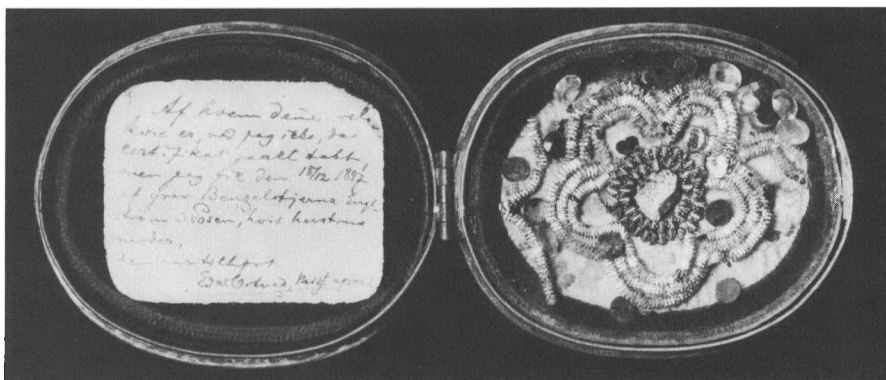 Af hvem denne reli-
kvie er, ved jeg ikke, da
certifikat gaaet tabt
men jeg fik den 18/12 1897
af grev Benzelstjerna Eng-
ström i Posen, hvis hustrus
moder,
den har tilhørt